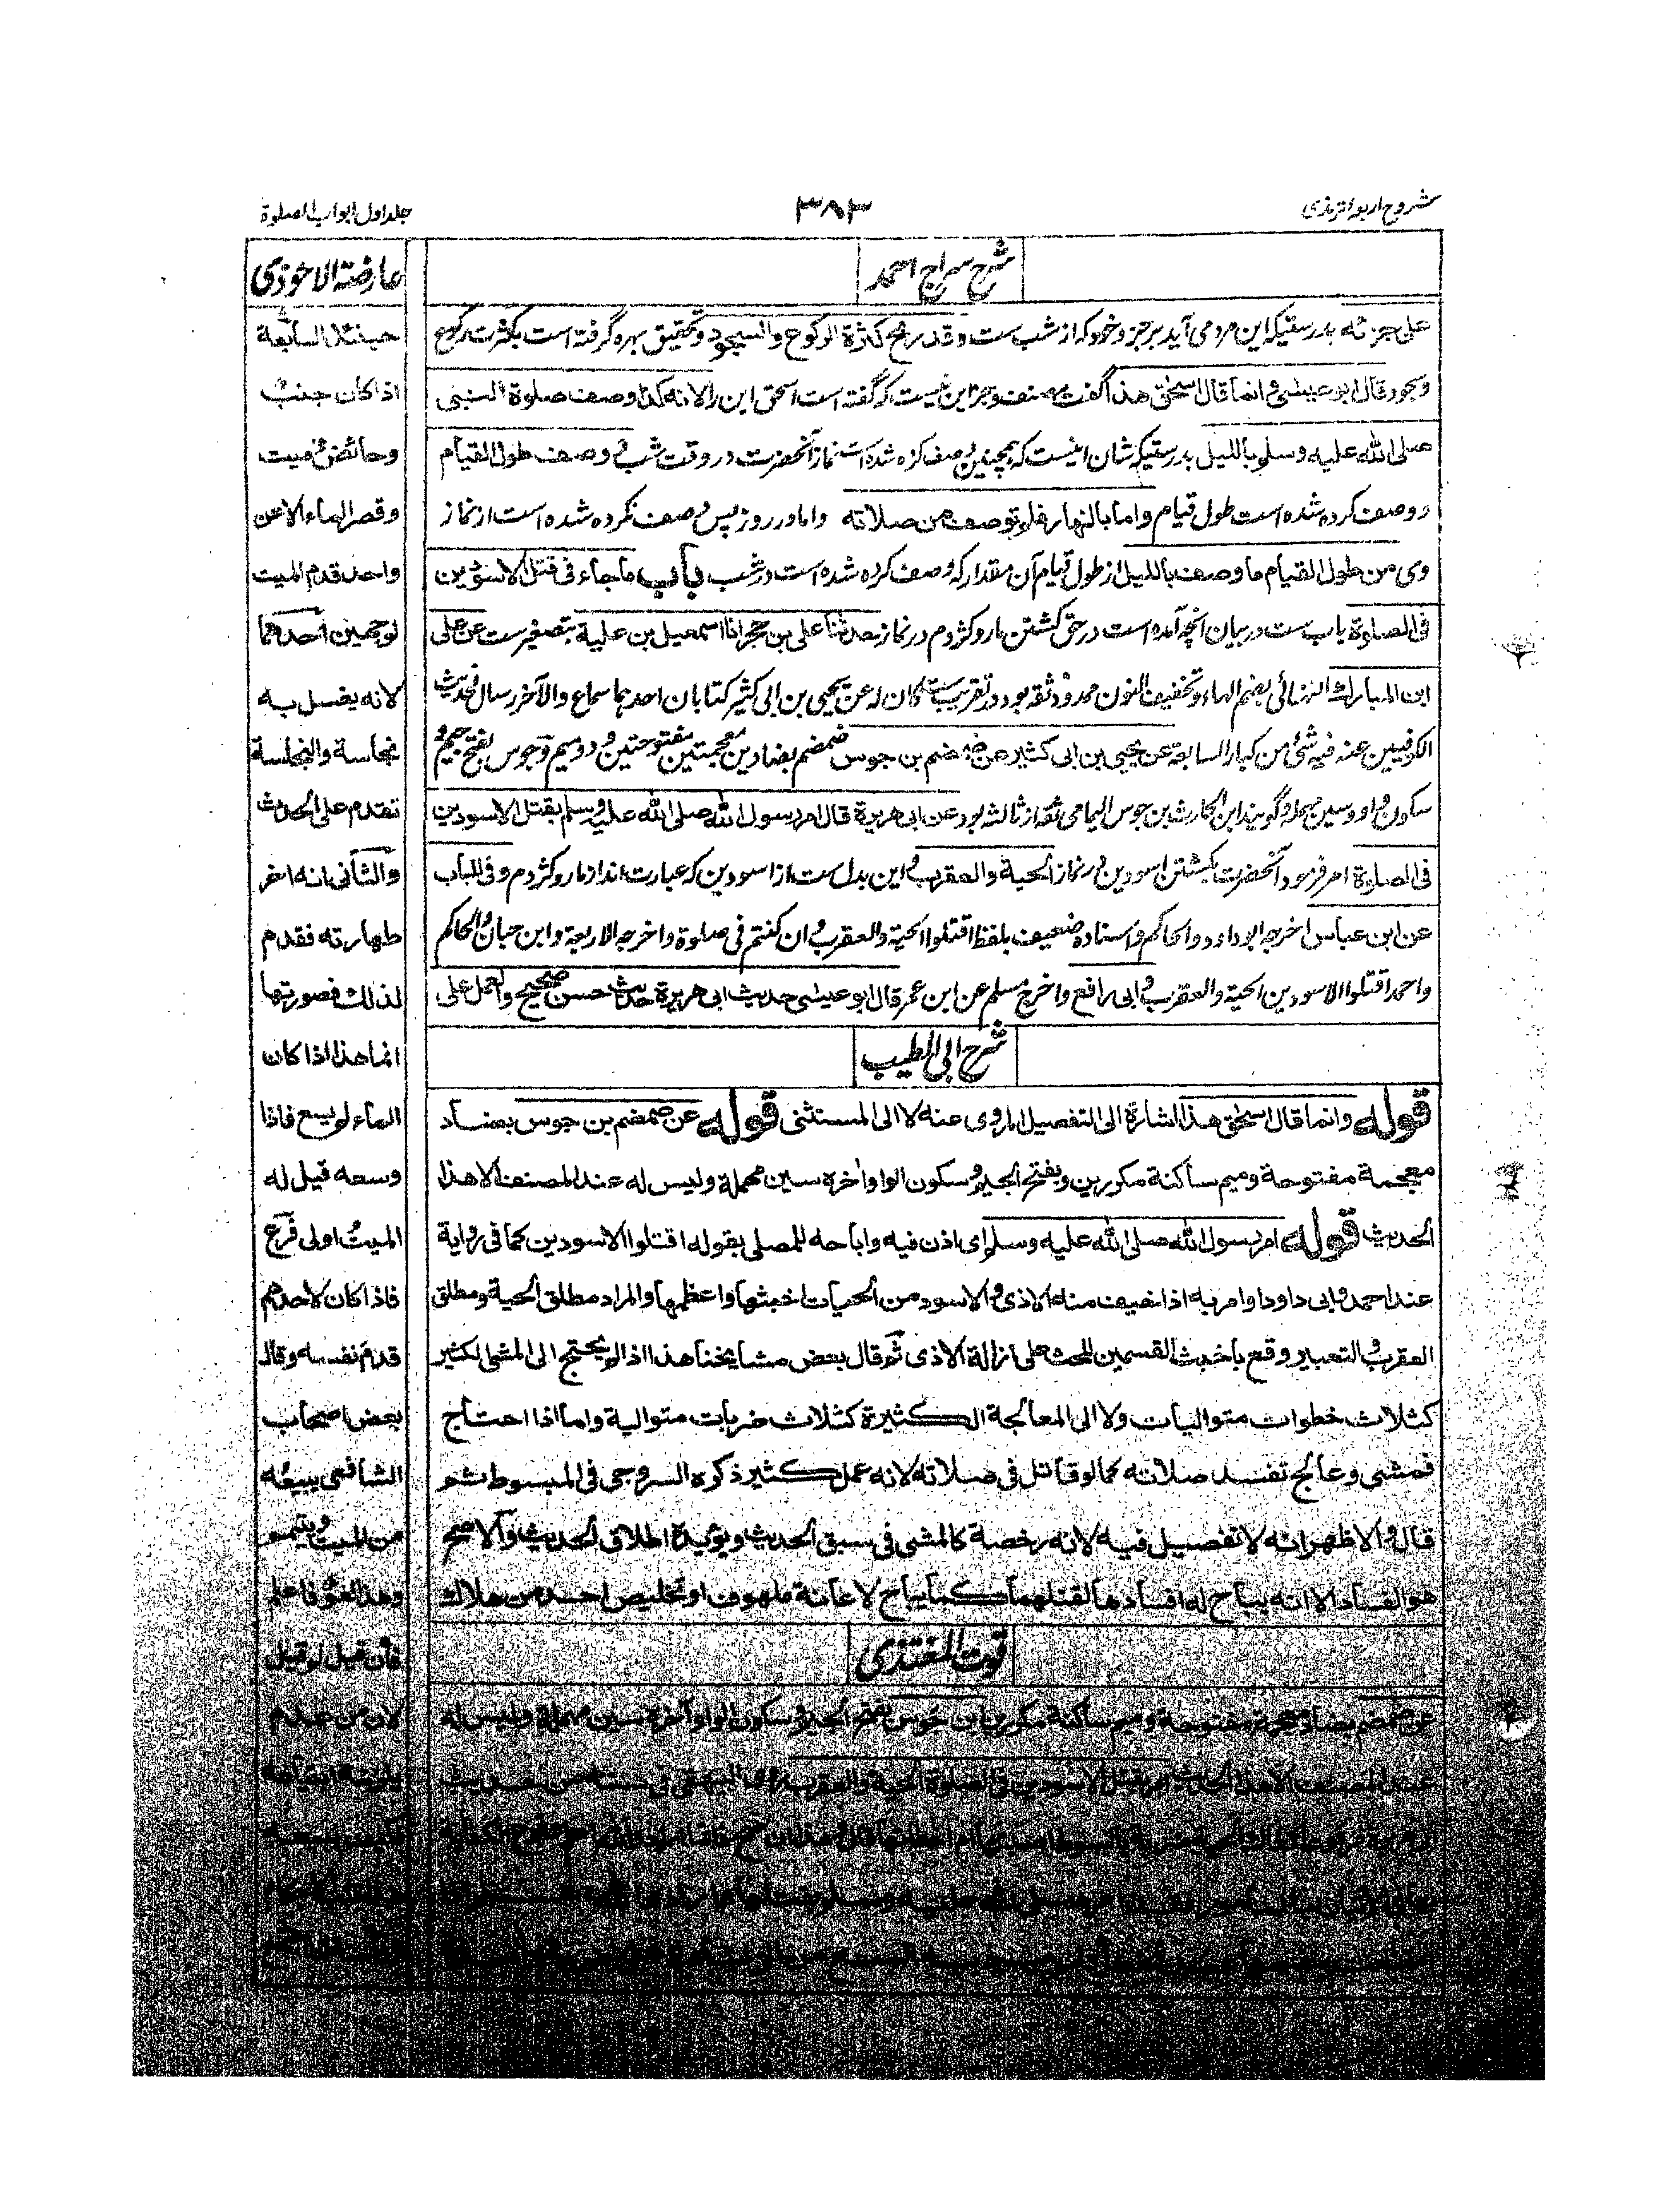 شروح اربعه ترمذی
٣٨٣
جلد اول ابواب الصلوة
شرح سراج احمد
علی جزئه بدرستیکه این مرد می آید بر جزو خود که از شب ست وقد ربح کثرة الرکوع والسجود و تحقیق بهره گرفته است بکثرت رکوع
وسجود قال ابو عیسی وانما قال اسحٰق هذا گفت مصنف وجز این نیست که گفته است اسحق این را لانه کذا وصف صلوة النبی
صلی الله علیه وسلم باللیل بدرستیکه شان اینست که همچنین وصف کرده شده است نماز آنحضرت در وقت شب ووصف طول القیام
ووصف کرده شده است طول قیام واما بالنهار فلم توصف من صلاته واما در روز پس وصف نکرده شده است از نماز
وی من طول القیام ما وصف باللیل از طول قیام آن مقدار که وصف کرده شده است در شب باب ما جاء فی قتل الاسودین
فی الصلوة باب ست در بیان آنچه آمده است در حق کشتن مار وکژدم در نماز حدثنا علی بن حجر انا اسمعیل بن علیة بتصغیر ست عن علی
ابن المبارک الهنائی بضم الهاء وتخفیف النون ممدود ثقه بود در تقریب ست کان له عن یحیی بن ابی کثیر کتابان احدهما سماع والآخر رسال فحدیث
الکوفیین عنه فیه شئ من کبار السابعة عن یحیی بن ابی کثیر عن ضمضم بن جوس ضمضم بضادین معجمتین مفتوحتین و دو میم وجوس بفتح جیم و
سکون واو وسین مهمله وگویند ابن الحارث بن جوس الیمامی ثقه از ثالثه بود عن ابی هریرة قال امر رسول الله صلی الله علیه وسلم بقتل الاسودین
فی الصلوة امر فرمود آنحضرت بکشتن اسودین در نماز الحیة والعقرب این بدل ست از اسودین که عبارت اند از مار وکژدم وفی الباب
عن ابن عباس اخرجه ابو داود والحاکم واسناده ضعیف بلفظ اقتلوا الحیة والعقرب وان کنتم فی صلوة واخرجه الاربعة وابن حبان والحاکم
واحمد اقتلوا الاسودین الحیة والعقرب وابی رافع واخرج مسلم عن ابن عمر قال ابو عیسی حدیث ابی هریرة حدیث حسن صحیح والعمل علی
شرح ابی الطیب
قوله وانما قال اسحٰق هذا اشارة الی التفصیل المروی عنه لا الی المستثنی قوله عن ضمضم بن جوس بضاد
معجمة مفتوحة ومیم ساکنة مکررین وبفتح الجیم وسکون الواو اخره سین مهملة ولیس له عند المصنف الا هذا
الحدیث قوله امر رسول الله صلی الله علیه وسلم ای اذن فیه واباحه للمصلی بقوله اقتلوا الاسودین کما فی روایة
عند احمد وابی داود او امر به اذا خیف منه الاذی والاسود من الحیات اخبثها واعظمها والمراد مطلق الحیة ومطلق
العقرب والتعبیر وقع باخبث القسمین للحث علی ازالة الاذی ثم قال بعض مشایخنا هذا اذا لم یحتج الی المشی الکثیر
کثلاث خطوات متوالیات ولا الی المعالجة الکثیرة کثلاث ضربات متوالیة واما اذا احتاج
فمشی وعالج تفسد صلاته کما لو قاتل فی صلاته لانه عمل کثیر ذکره السروجی فی المبسوط ثم
قال والاظهر انه لا تفصیل فیه لانه رخصة کالمشی فی سبق الحدث ویؤیده اطلاق الحدیث والاصح
هو الفساد الا انه یباح له افسادها لقتلهما کما یباح لاغاثة ملهوف او تخلیص احد من هلاك
قوت المغتذی
عن ضمضم بضاد معجمة مفتوحة ومیم ساکنة مکررین ابن جوس بفتح الجیم وسکون الواو آخره سین مهملة ولیس له
عند المصنف الا هذا الحدیث امر بقتل الاسودین فی الصلوة الحیة والعقرب روی البیهقی فی سننه من حدیث
عارضة الاحوذی
حینئذ السابعة
اذا کان جنب
وحائض ومیت
وقصر الماء الا عن
واحد قدم المیت
لوجهین احدهما
لانه یغسل به
نجاسة والنجاسة
تقدم علی الحدث
والثانی انه اخر
طهارته فقدم
لذلك فصورتها
انما هذا اذا کان
الماء لم یسع فاذا
وسعه قیل له
المیت اولی فرع
فاذا کان لاحدهم
قدم نفسه وقال
بعض اصحاب
الشافعی یبیعه
من المیت ویتیمم
وهذا لغو فاعلم
فان قیل لم قیل
لان من عدم